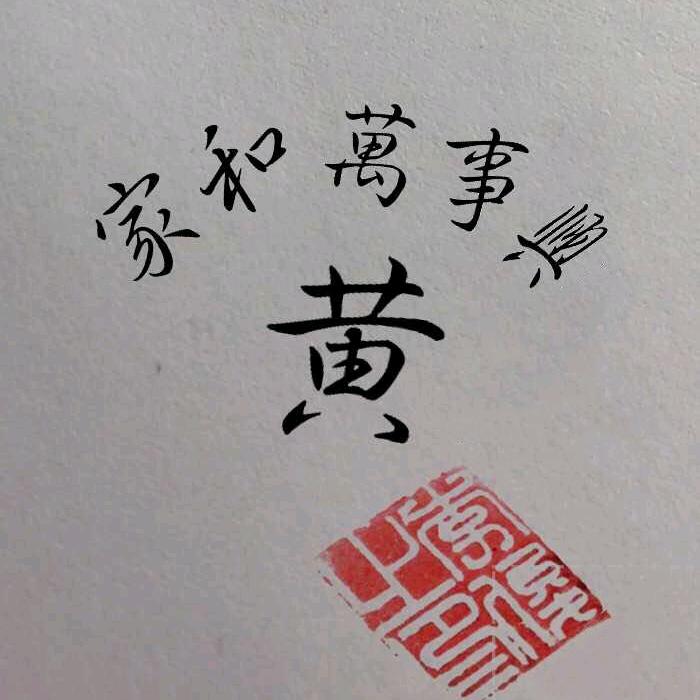 家和萬事興
黄